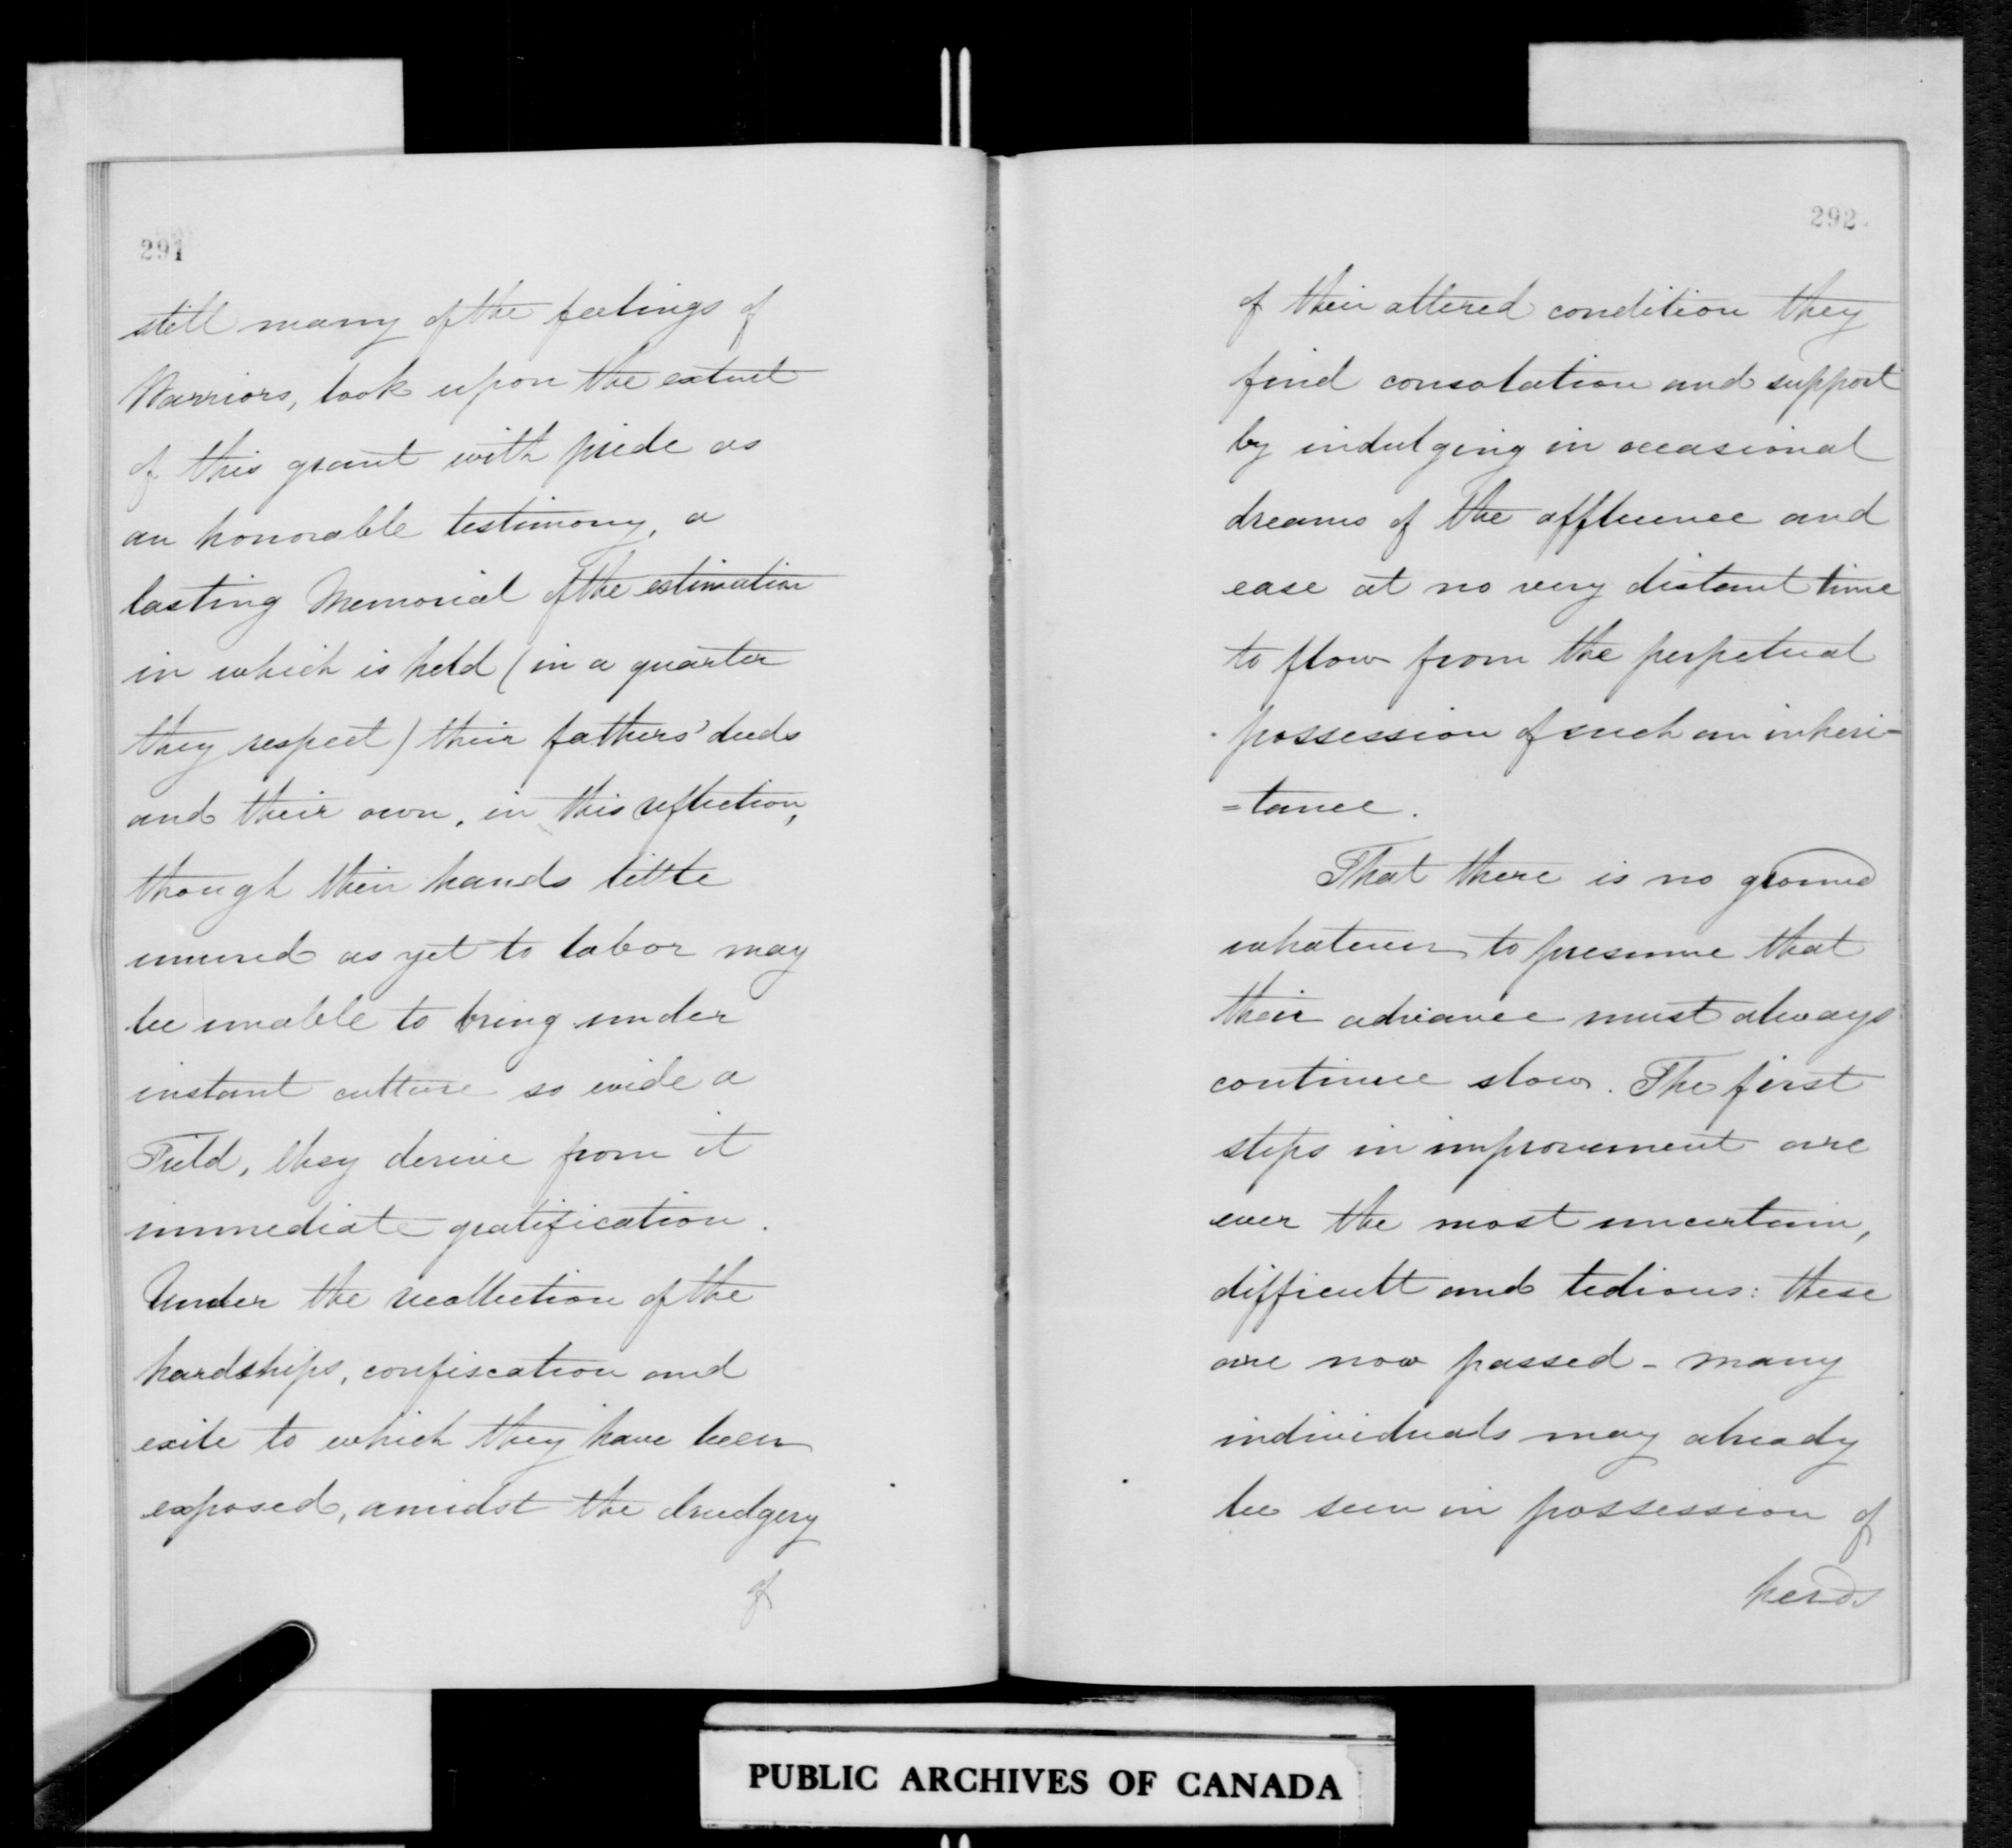 291
still many of the feelings of
Warriors, look upon the extent
of this grant with pride as
an honorable testimony, a
lasting Memorial of the estimation
in which is held (in a quarter
they respect) their fathers' deeds
and their own, in this reflection,
though their hands little
inured as yet to labor may
be unable to bring under
instant culture so wide a
Field, they derive from it
immediate gratification.
Under the recollection of the
hardships, confiscation and
exile to which they have been
exposed, amidst the drudgery
of
292
of their altered condition they
find consolation and support
by indulging in occasional
dreams of the affluence and
ease at no very distant time
to flow from the perpetual
possession of such an inheri-
=tance.
That there is no ground
whatever to presume that
their advance must always
continue slow. The first
steps in improvement are
ever the most uncertain,
difficult and tedious: these
are now passed - many
individuals may already
be seen in possession of
herds
PUBLIC ARCHIVES OF CANADA